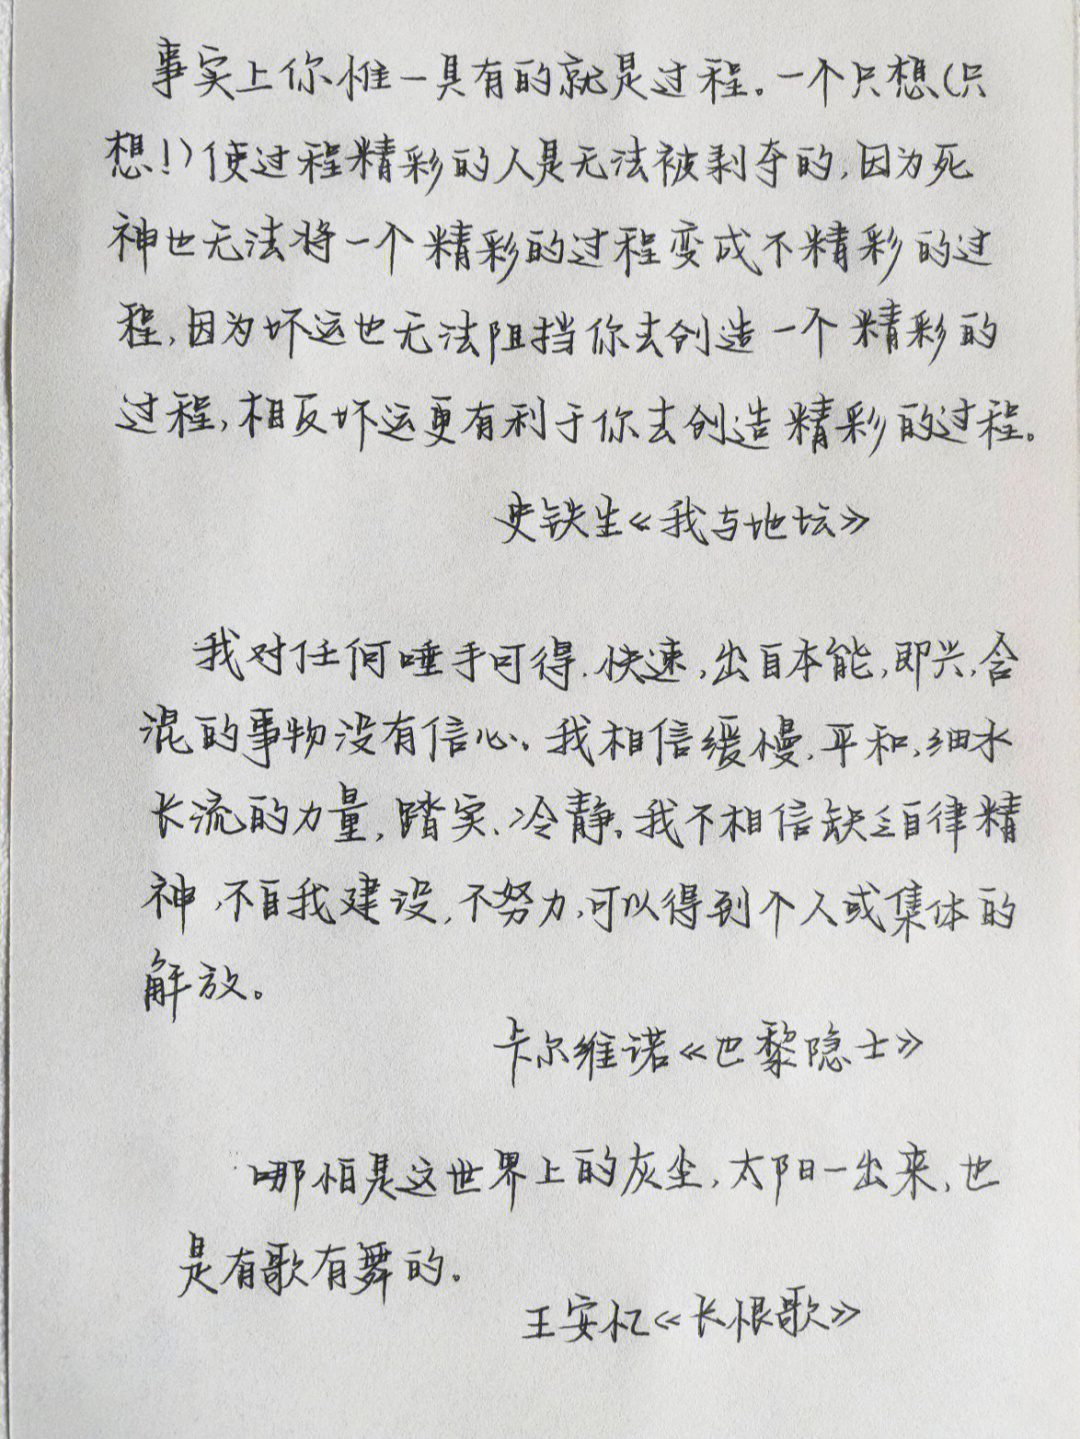 事实上你惟一具有的就是过程。一个只想(只
想!)使过程精彩的人是无法被剥夺的,因为死
神也无法将一个精彩的过程变成不精彩的过
程,因为坏运也无法阻挡你去创造一个精彩的
过程,相反坏运更有利于你去创造精彩的过程。
史铁生《我与地坛》
我对任何唾手可得.快速,出自本能,即兴,含
混的事物没有信心。我相信缓慢,平和,细水
长流的力量,踏实、冷静。我不相信缺乏自律精
神,不自我建设,不努力,可以得到个人或集体的
解放。
卡尔维诺《巴黎隐士》
哪怕是这世界上的灰尘,太阳一出来,也
是有歌有舞的。
王安忆《长恨歌》